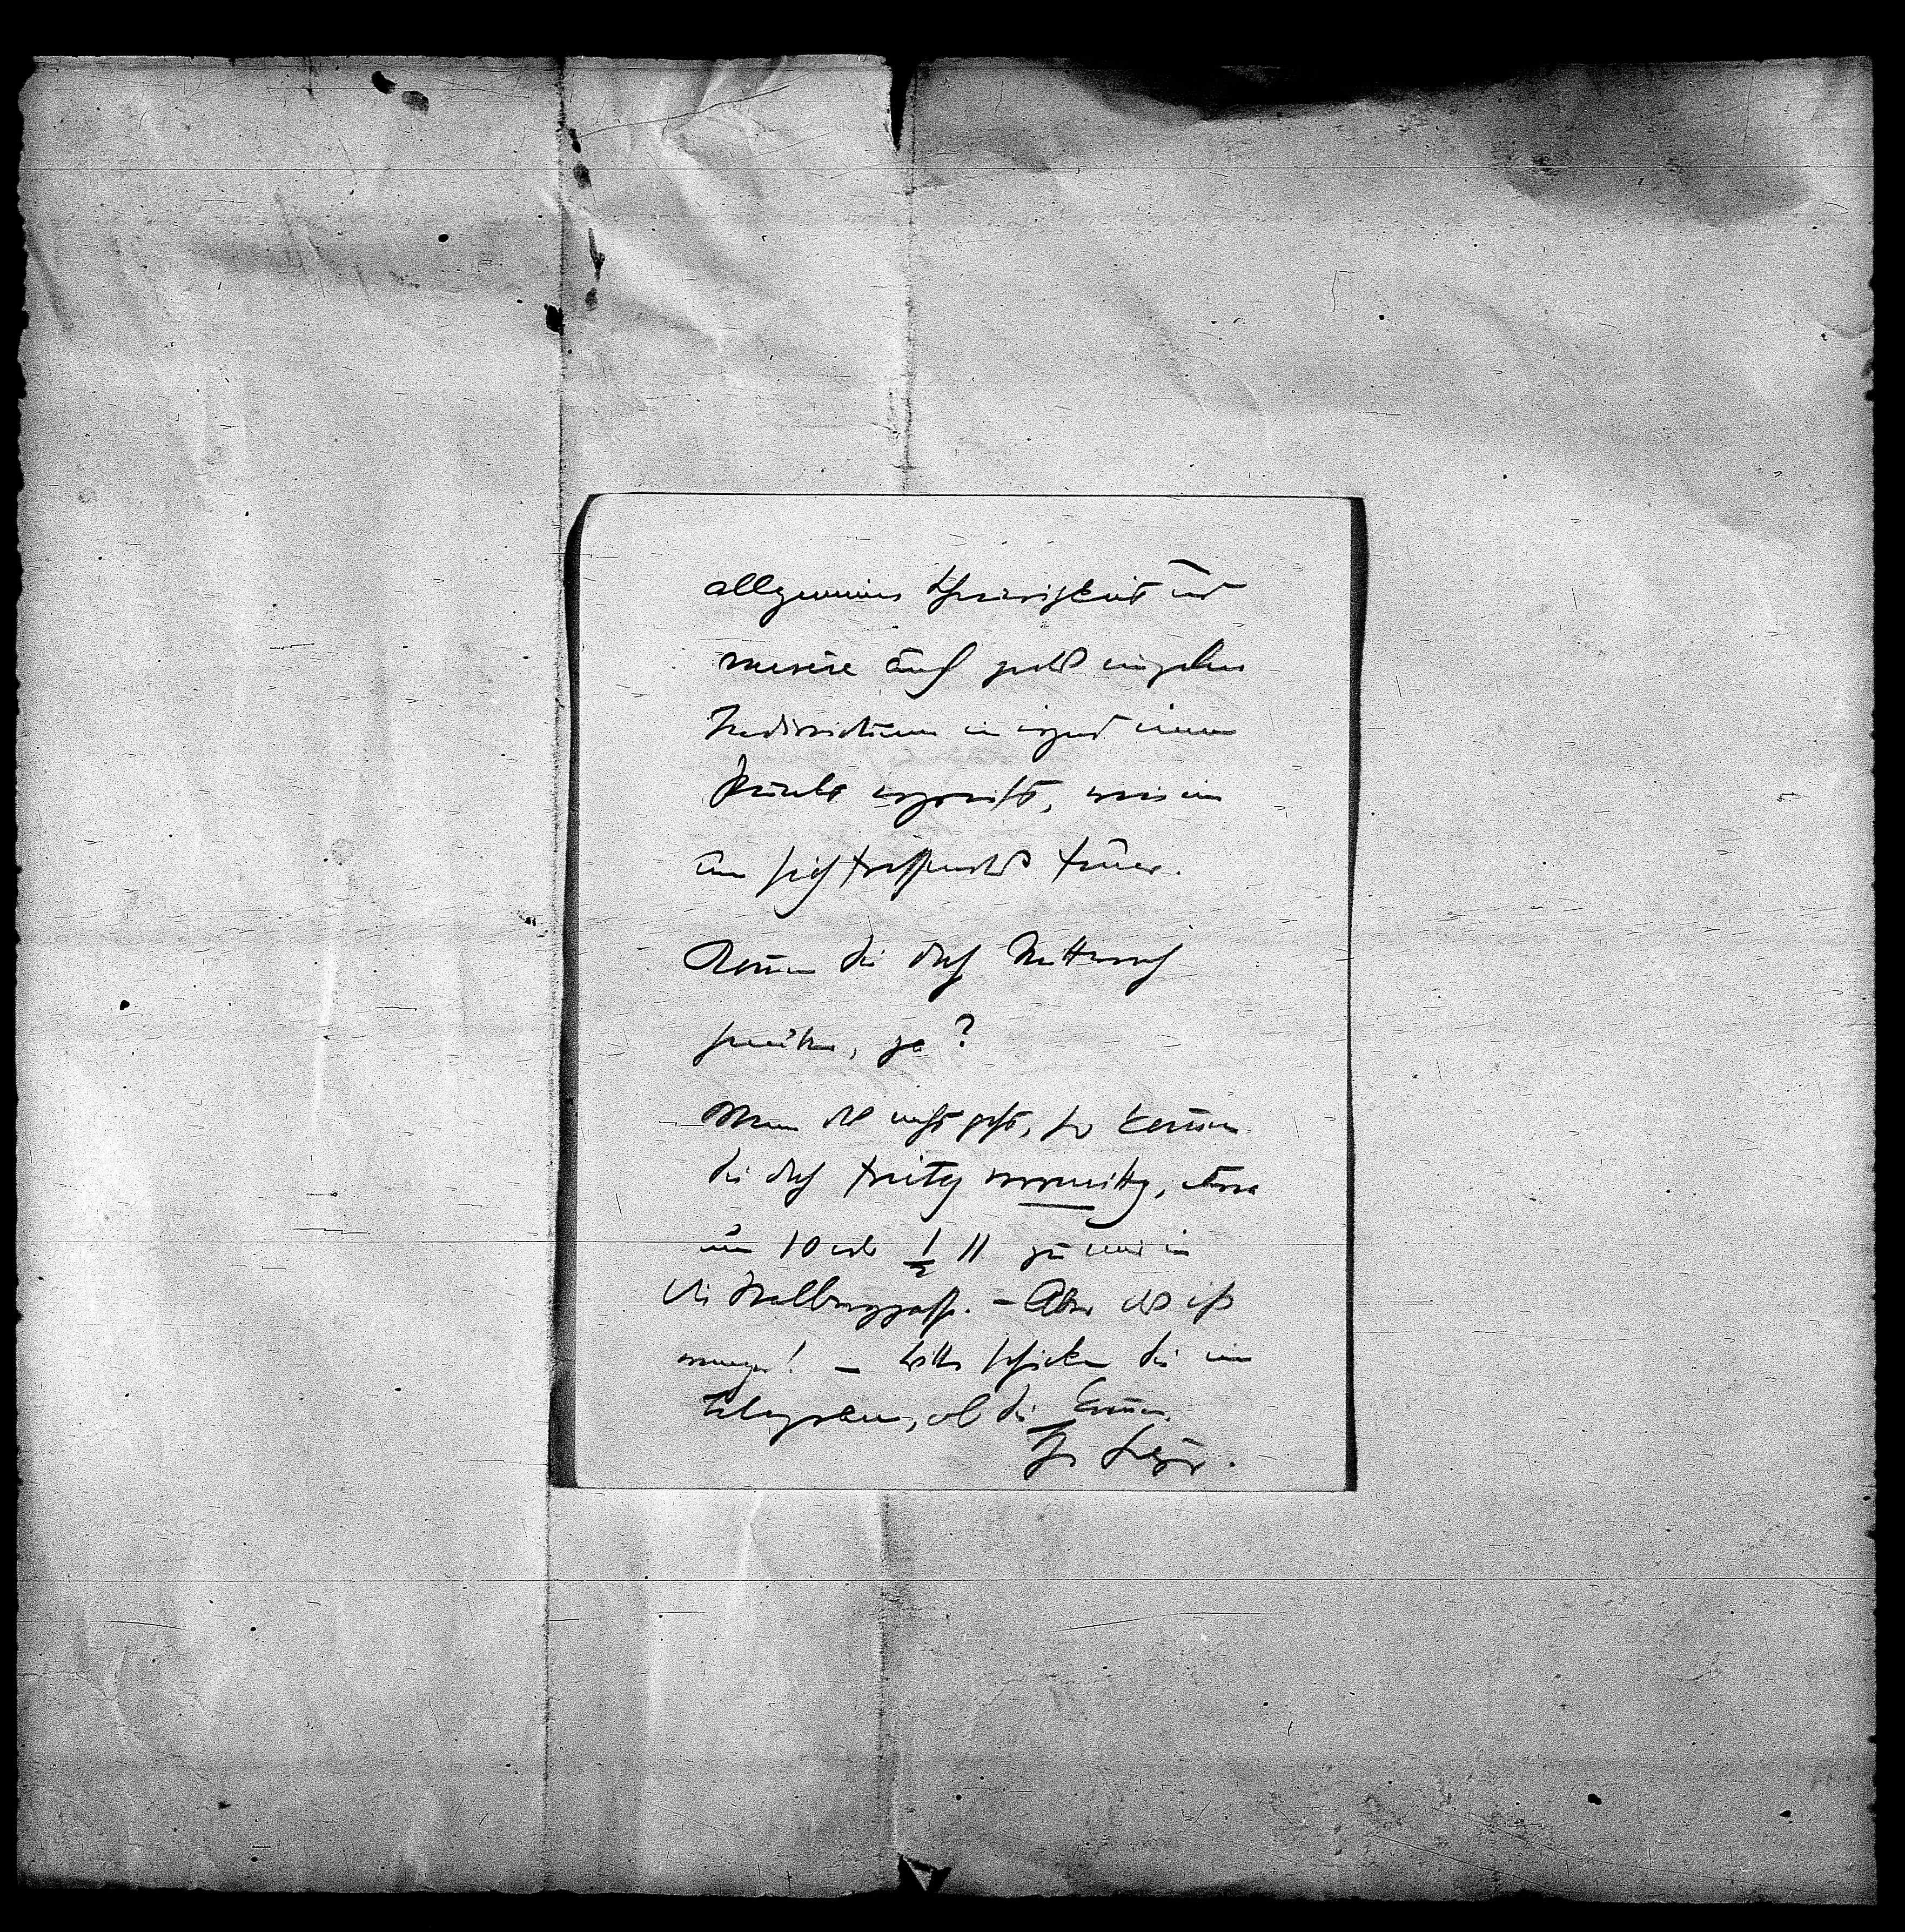 allgemeine Schwierigkeit und
misère auch jedes einzelne
Individuum in irgend einem
Punkte ergreift, wie ein
um sich fressendes Feuer.
Können Sie doch Mittwoch
, ja?
Wenn das nicht geht, so können
Sie doch Freitag vormittg, etwa
um 10 oder ½ 11 zu mir in
die Stallburggasse. – Aber das ist
weniger! – bitte schicken Sie ein
Telegramm, ob Sie können.
Ihr